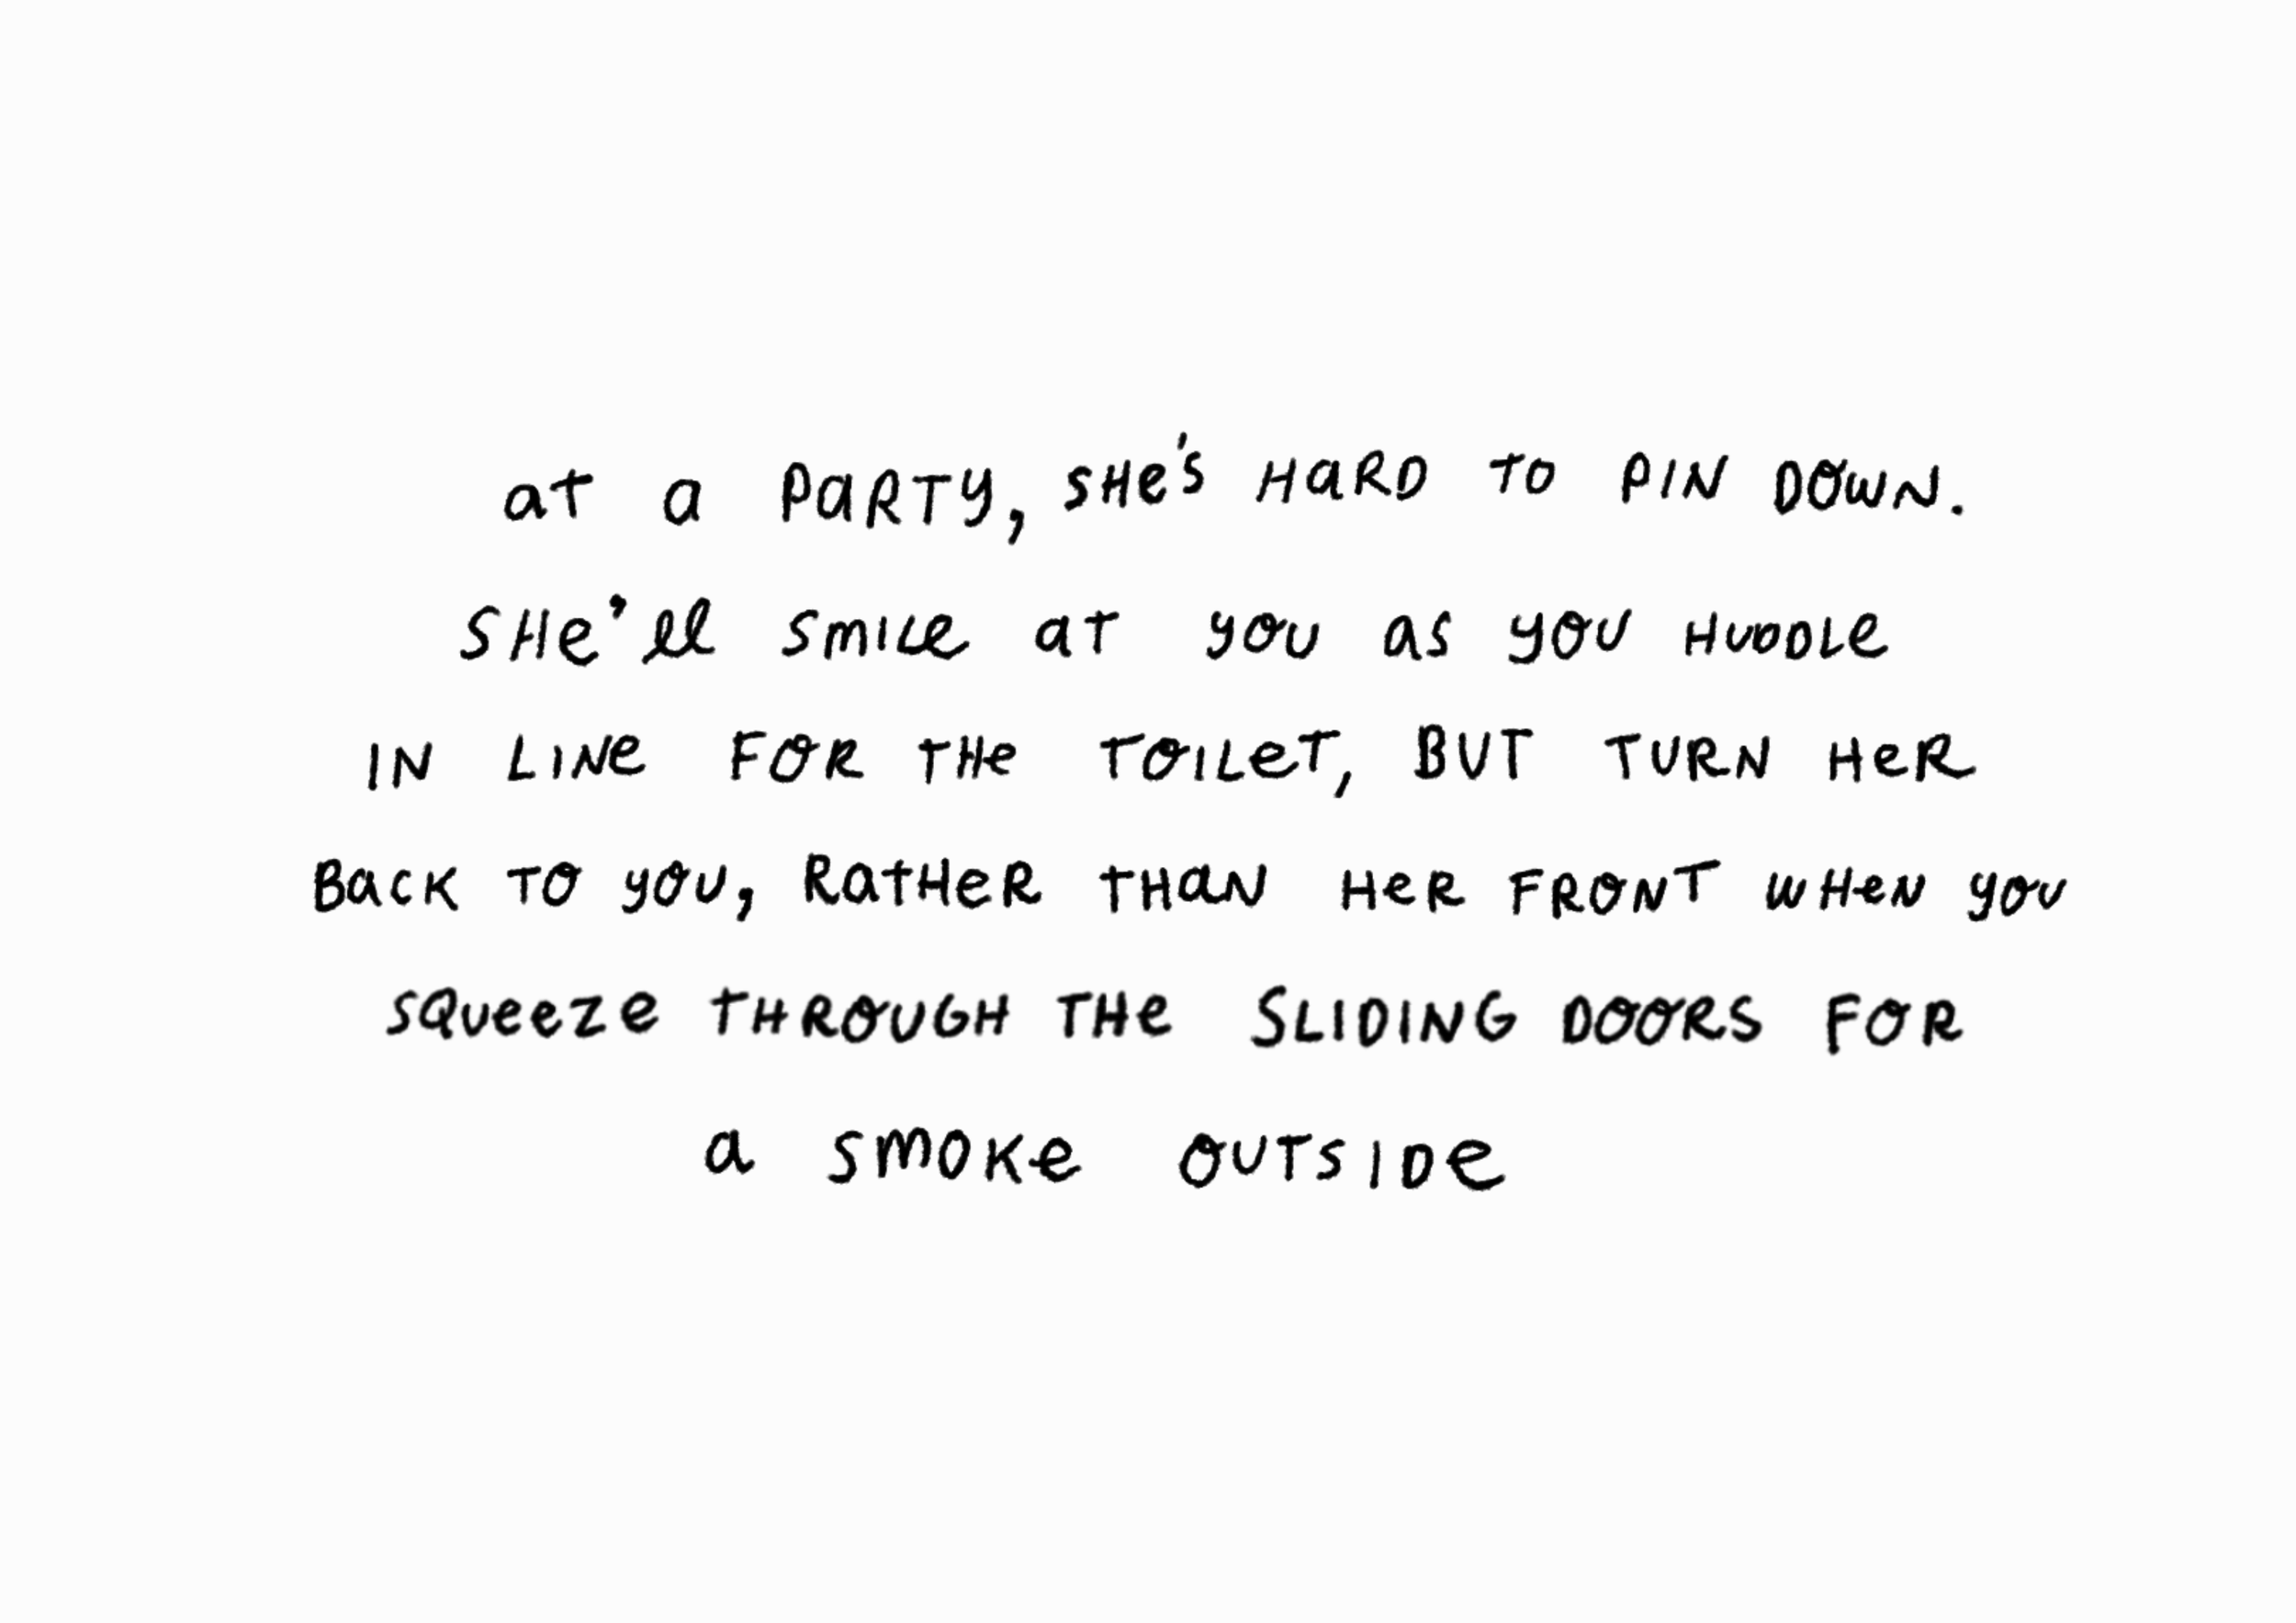 at a PaRTY, SHe's HaRD TO PIN DOWN.
SHe'll SmILe at you as you HUDDLe
IN LINe FOR THe TOILeT, BUT TURN HeR
Back TO you, RatHeR THaN HeR FRONT WHeN you
SQueeze THROUGH THe SLIDING DOORS FOR
a SmOKe OUTSIDe